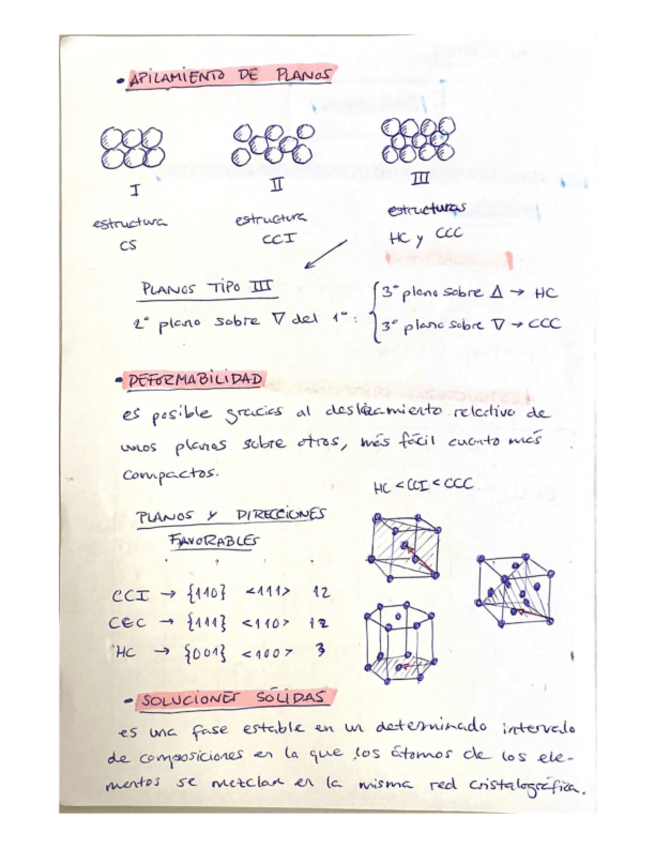 • APILAMIENTO DE PLANOS
I II III
estructura CS
estructura CCI
estructuras HC y CCC
PLANOS TIPO III
2º plano sobre ∇ del 1º:
3º plano sobre Δ → HC
3º plano sobre ∇ → CCC
• DEFORMABILIDAD
es posible gracias al deslizamiento relativo de
unos planos sobre otros, más fácil cuanto más
compactos.
HC < CCI < CCC
PLANOS Y DIRECCIONES
FAVORABLES
CCI → {110} <111> 12
CCC → {111} <110> 12
HC → {001} <100> 3
• SOLUCIONES SÓLIDAS
es una fase estable en un determinado intervalo
de composiciones en la que los átomos de los ele-
mentos se mezclan en la misma red cristalográfica.